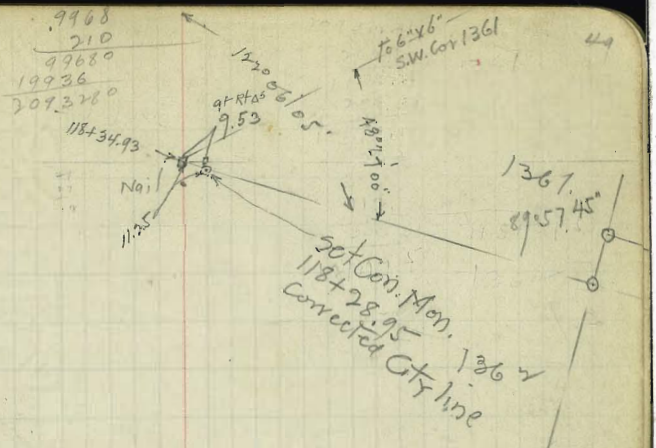 .9968
210
99680
19936
209.3280
122°06'05"
to 6"x6"
S.W. Cor 1361
49
at Rt ∆s
9.53
118+34.93
Nail
11.25
48°27'00"
1361
89°57'45"
Set Con. Mon.
118+28.95
Corrected Cty line
1362